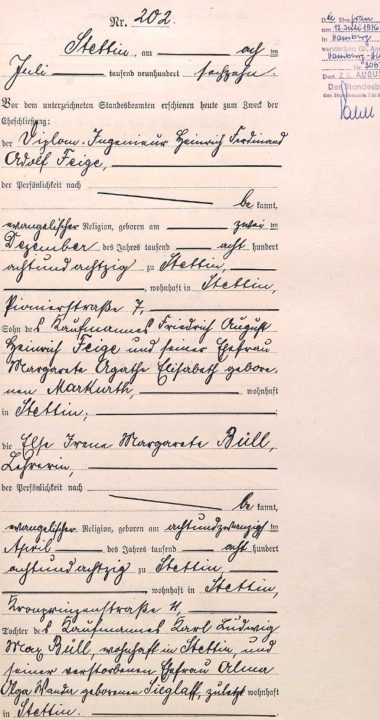 Nr. 202.
Stettin, am acht en
Juli tausend neunhundert sechzehn.
Vor dem unterzeichneten Standesbeamten erschienen heute zum Zweck der
Eheschließung:
der Diplom-Ingenieur Heinrich Ferdinand
Adolf Feige,
der Persönlichkeit nach
be kannt,
evangelischer Religion, geboren am zwei ten
Dezember des Jahres tausend acht hundert
achtundachtzig zu Stettin,
, wohnhaft in Stettin,
Pionierstraße 7,
Sohn des Kaufmannes Friedrich August
Heinrich Feige und seiner Ehefrau
Margarete Agathe Elisabeth gebore-
nen Markurth, wohnhaft
in Stettin;
die Else Irene Margarete Büll,
Lehrerin,
der Persönlichkeit nach
be kannt,
evangelischer Religion, geboren am achtundzwanzigsten
April des Jahres tausend acht hundert
achtundachtzig zu Stettin
, wohnhaft in Stettin,
Kronprinzenstraße 4,
Tochter des Kaufmannes Karl Ludwig
Max Büll, wohnhaft in Stettin, und
seiner verstorbenen Ehefrau Alma
Olga Wanda geborenen Zieglaff, zuletzt wohnhaft
in Stettin.
Die Ehefrau
am 12. Juli 1976
in Hamburg
verstorben (St. Am
Hamburg
Nr.
Den 20. AUGUS
Der Standesb